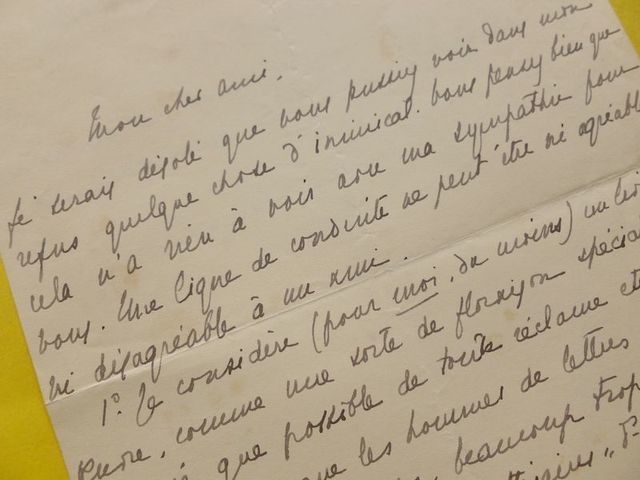 Mon cher ami.
Je serais désolé que vous puissiez voir dans mon
refus quelque chose d'inimical. Vous pensez bien que
cela n'a rien à voir avec ma sympathie pour
vous. Une ligne de conduite ne peut être ni agréable
ni désagréable à un ami.
1º. Je considère (pour moi, du moins) un
comme une sorte de floraison
que possible de toute réclame
que les hommes de lettres
beaucoup trop